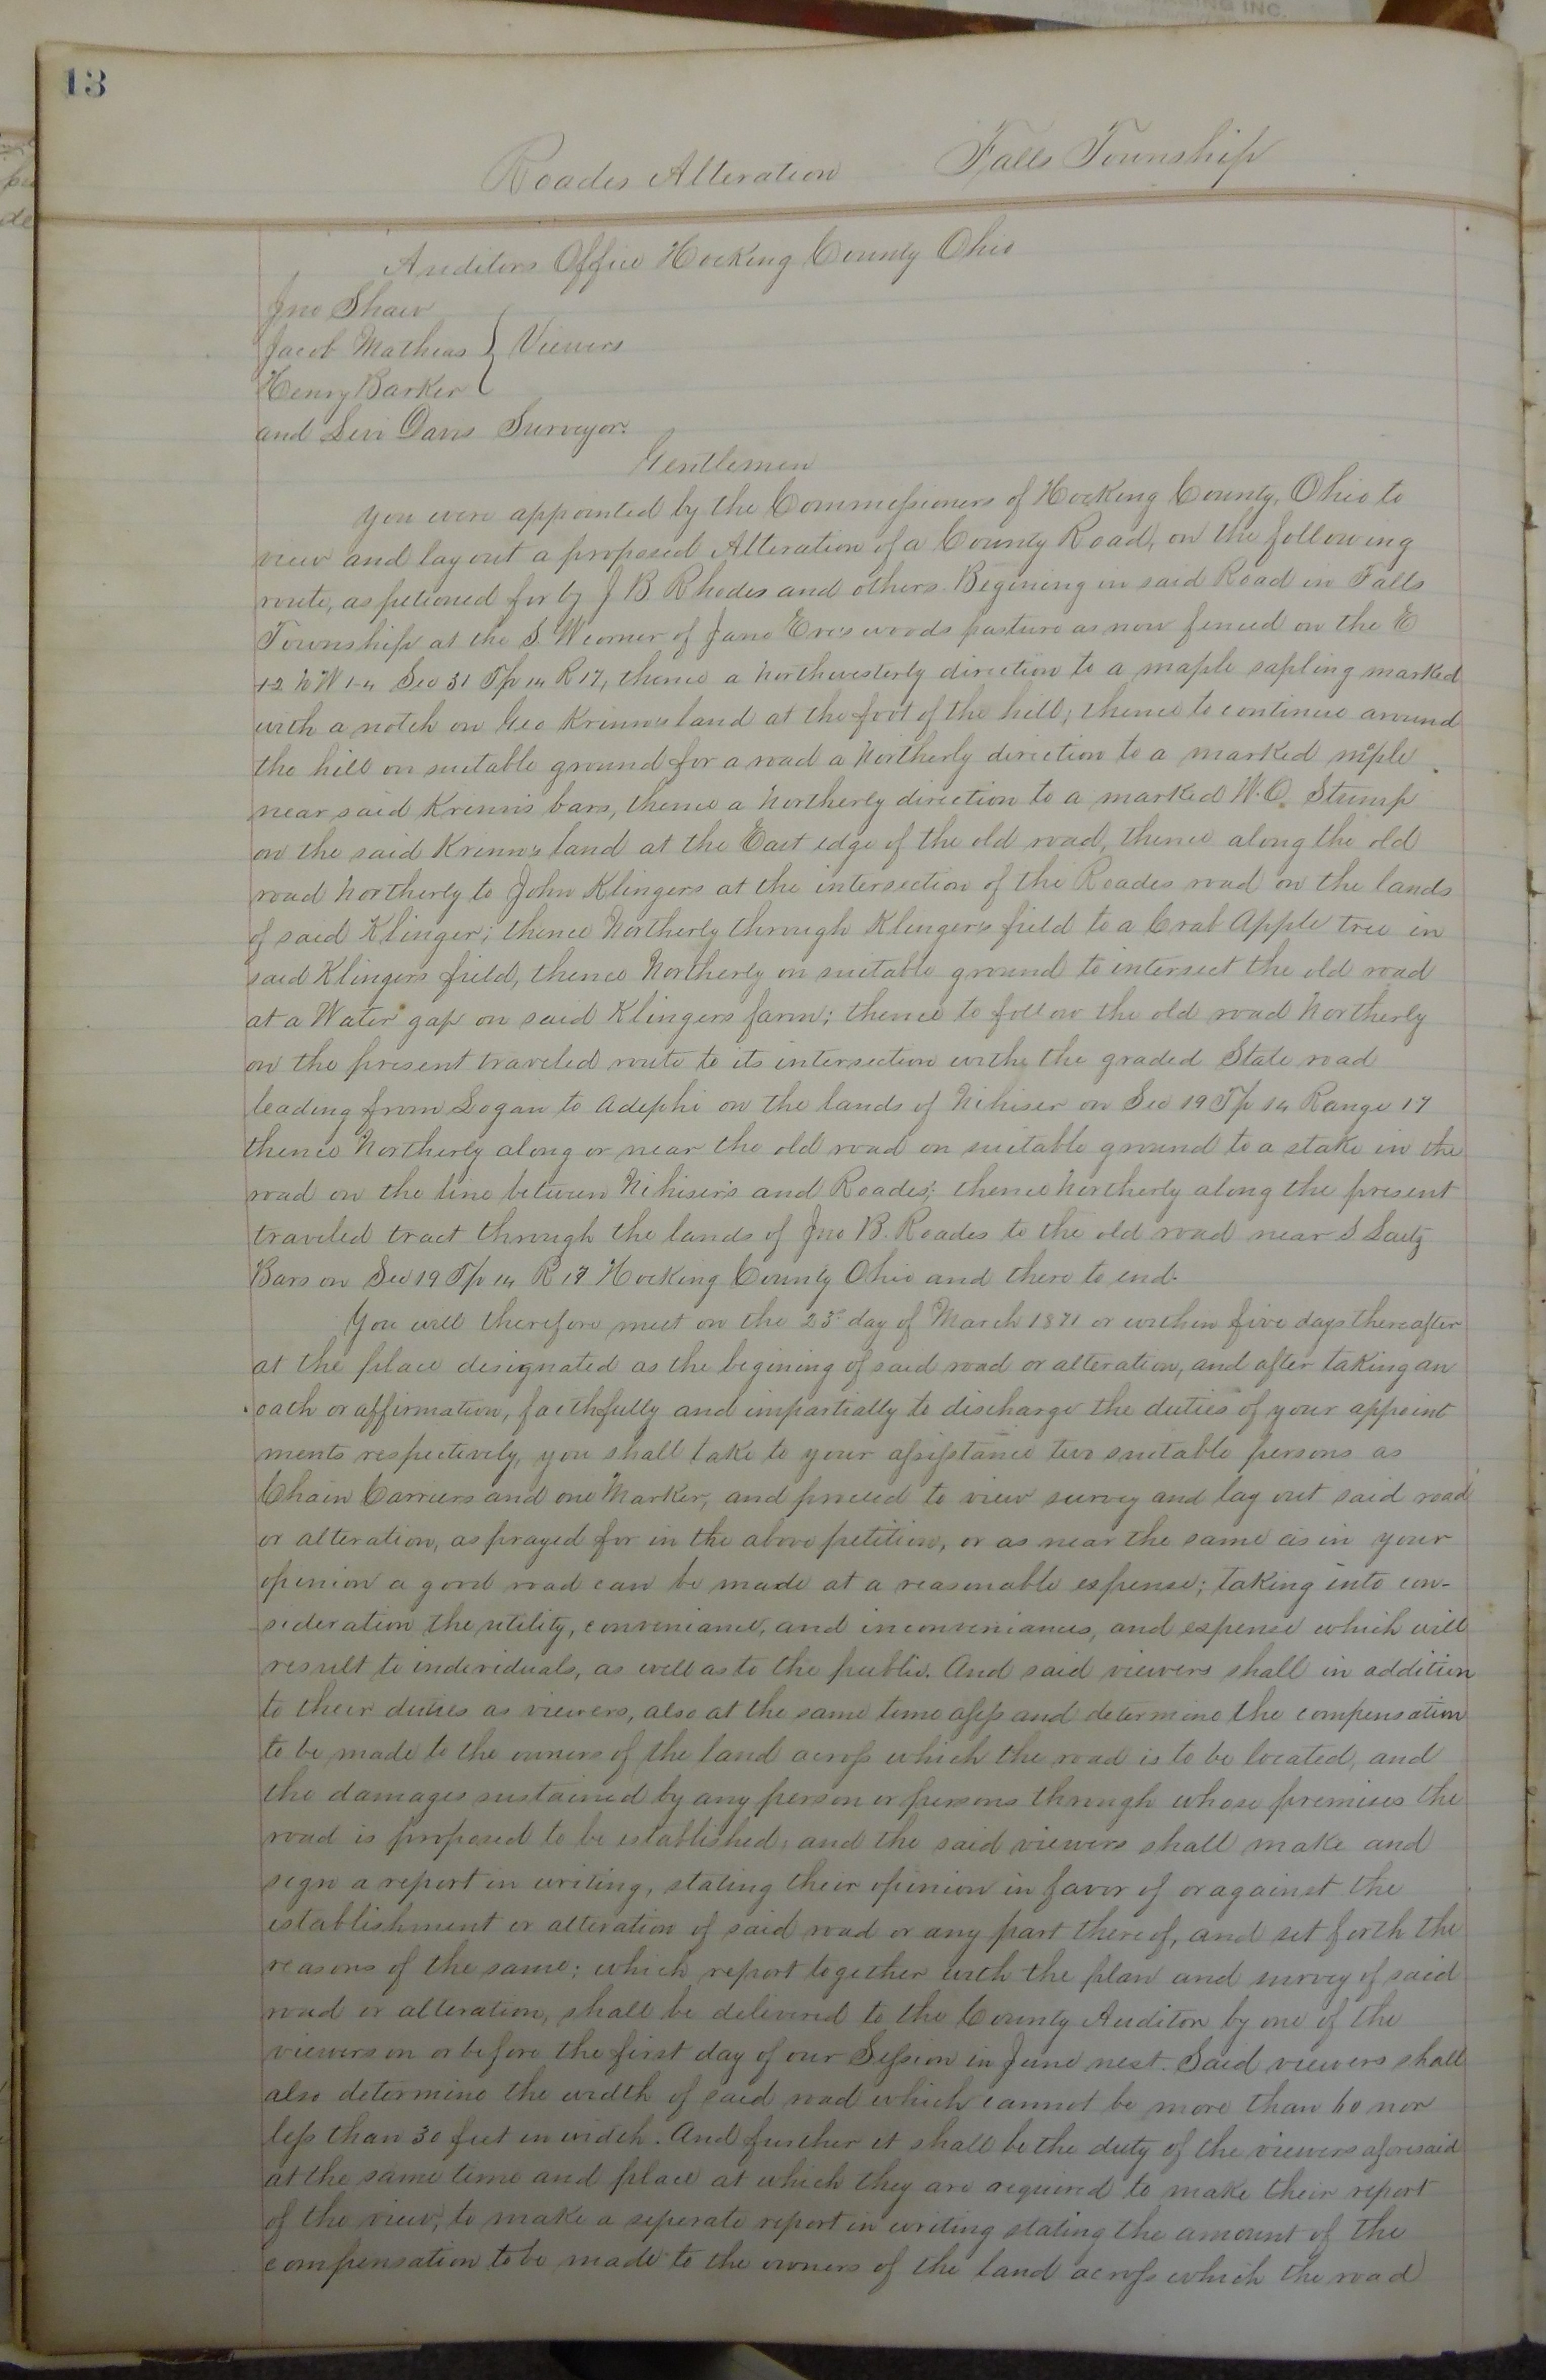 13
Roades Alteration Falls Township
Auditors Office Hocking County Ohio
Jno Shaw
Jacob Mathias } Viewers
Henry Barker
and Levi Davis Surveyor.
Gentlemen
You were appointed by the Commissioners of Hocking County, Ohio to
view and lay out a proposed Alteration of a County Road, on the following
route, as petioned for by J B Rhodes and others. Begining in said Road in Falls
Township at the S. W corner of Jane Eve's woods pasture as now fenced on the E
1-2 N W 1-4 Sec 31 Tp 14 R 17, thence a Northwesterly direction to a maple sapling marked
with a notch on Geo Krinns land at the foot of the hill; thence to continue around
the hill on suitable ground for a road a Northerly direction to a marked maple
near said Krinn's bars, thence a Northerly direction to a marked W. O. Stump
on the said Krinn's land at the East edge of the old road, thence along the old
road Northerly to John Klingers at the intersection of the Roades road on the lands
of said Klinger; thence Northerly through Klingers field to a Crab Apple tree in
said Klingers field, thence Northerly on suitable ground to intersect the old road
at a Water gap on said Klingers farm; thence to follow the old road Northerly
on the present traveled route to its intersection with the graded State road
leading from Logan to Adelphi on the lands of Nihiser on Sec 19 Tp 14 Range 17
thence Northerly along or near the old road on suitable ground to a stake in the
road on the line between Nihiser's and Roades'; thence Northerly along the present
traveled tract through the lands of Jno B. Roades to the old road near S
Bars on Sec 19 Tp 14 R 17 Hocking County Ohio and there to end.
You will therefore meet on the day of March 1871 or within five days thereafter
at the place designated as the begining of said road or alteration, and after taking an
oath or affirmation, faithfully and impartially to discharge the duties of your appoint
ments respectively, you shall take to your assistance two suitable persons as
Chain Carriers and one Marker, and proceed to view survey and lay out said road
or alteration, as prayed for in the above petition, or as near the same as in your
opinion a good road can be made at a reasonable expense; taking into con-
sideration the utility, conveniance, and inconveniances, and expense which will
result to individuals, as well as to the public. And said viewers shall in addition
to their duties as viewers, also at the same time assess and determine the compensation
to be made to the owners of the land across which the road is to be located, and
the damages sustained by any person or persons through whose premises the
road is proposed to be established; and the said viewers shall make and
sign a report in writing, stating their opinion in favor of or against the
establishment or alteration of said road or any part thereof, and set forth the
reasons of the same; which report together with the plan and survey of said
road or alteration, shall be delivered to the County Auditor by one of the
viewers on or before the first day of our Session in June next. Said viewers shall
also determine the width of said road which cannot be more than 60 nor
less than 30 feet in width. And further it shall be the duty of the viewers aforesaid
at the same time and place at which they are required to make their report
of the view, to make a seperate report in writing stating the amount of the
compensation to be made to the owners of the land across which the road